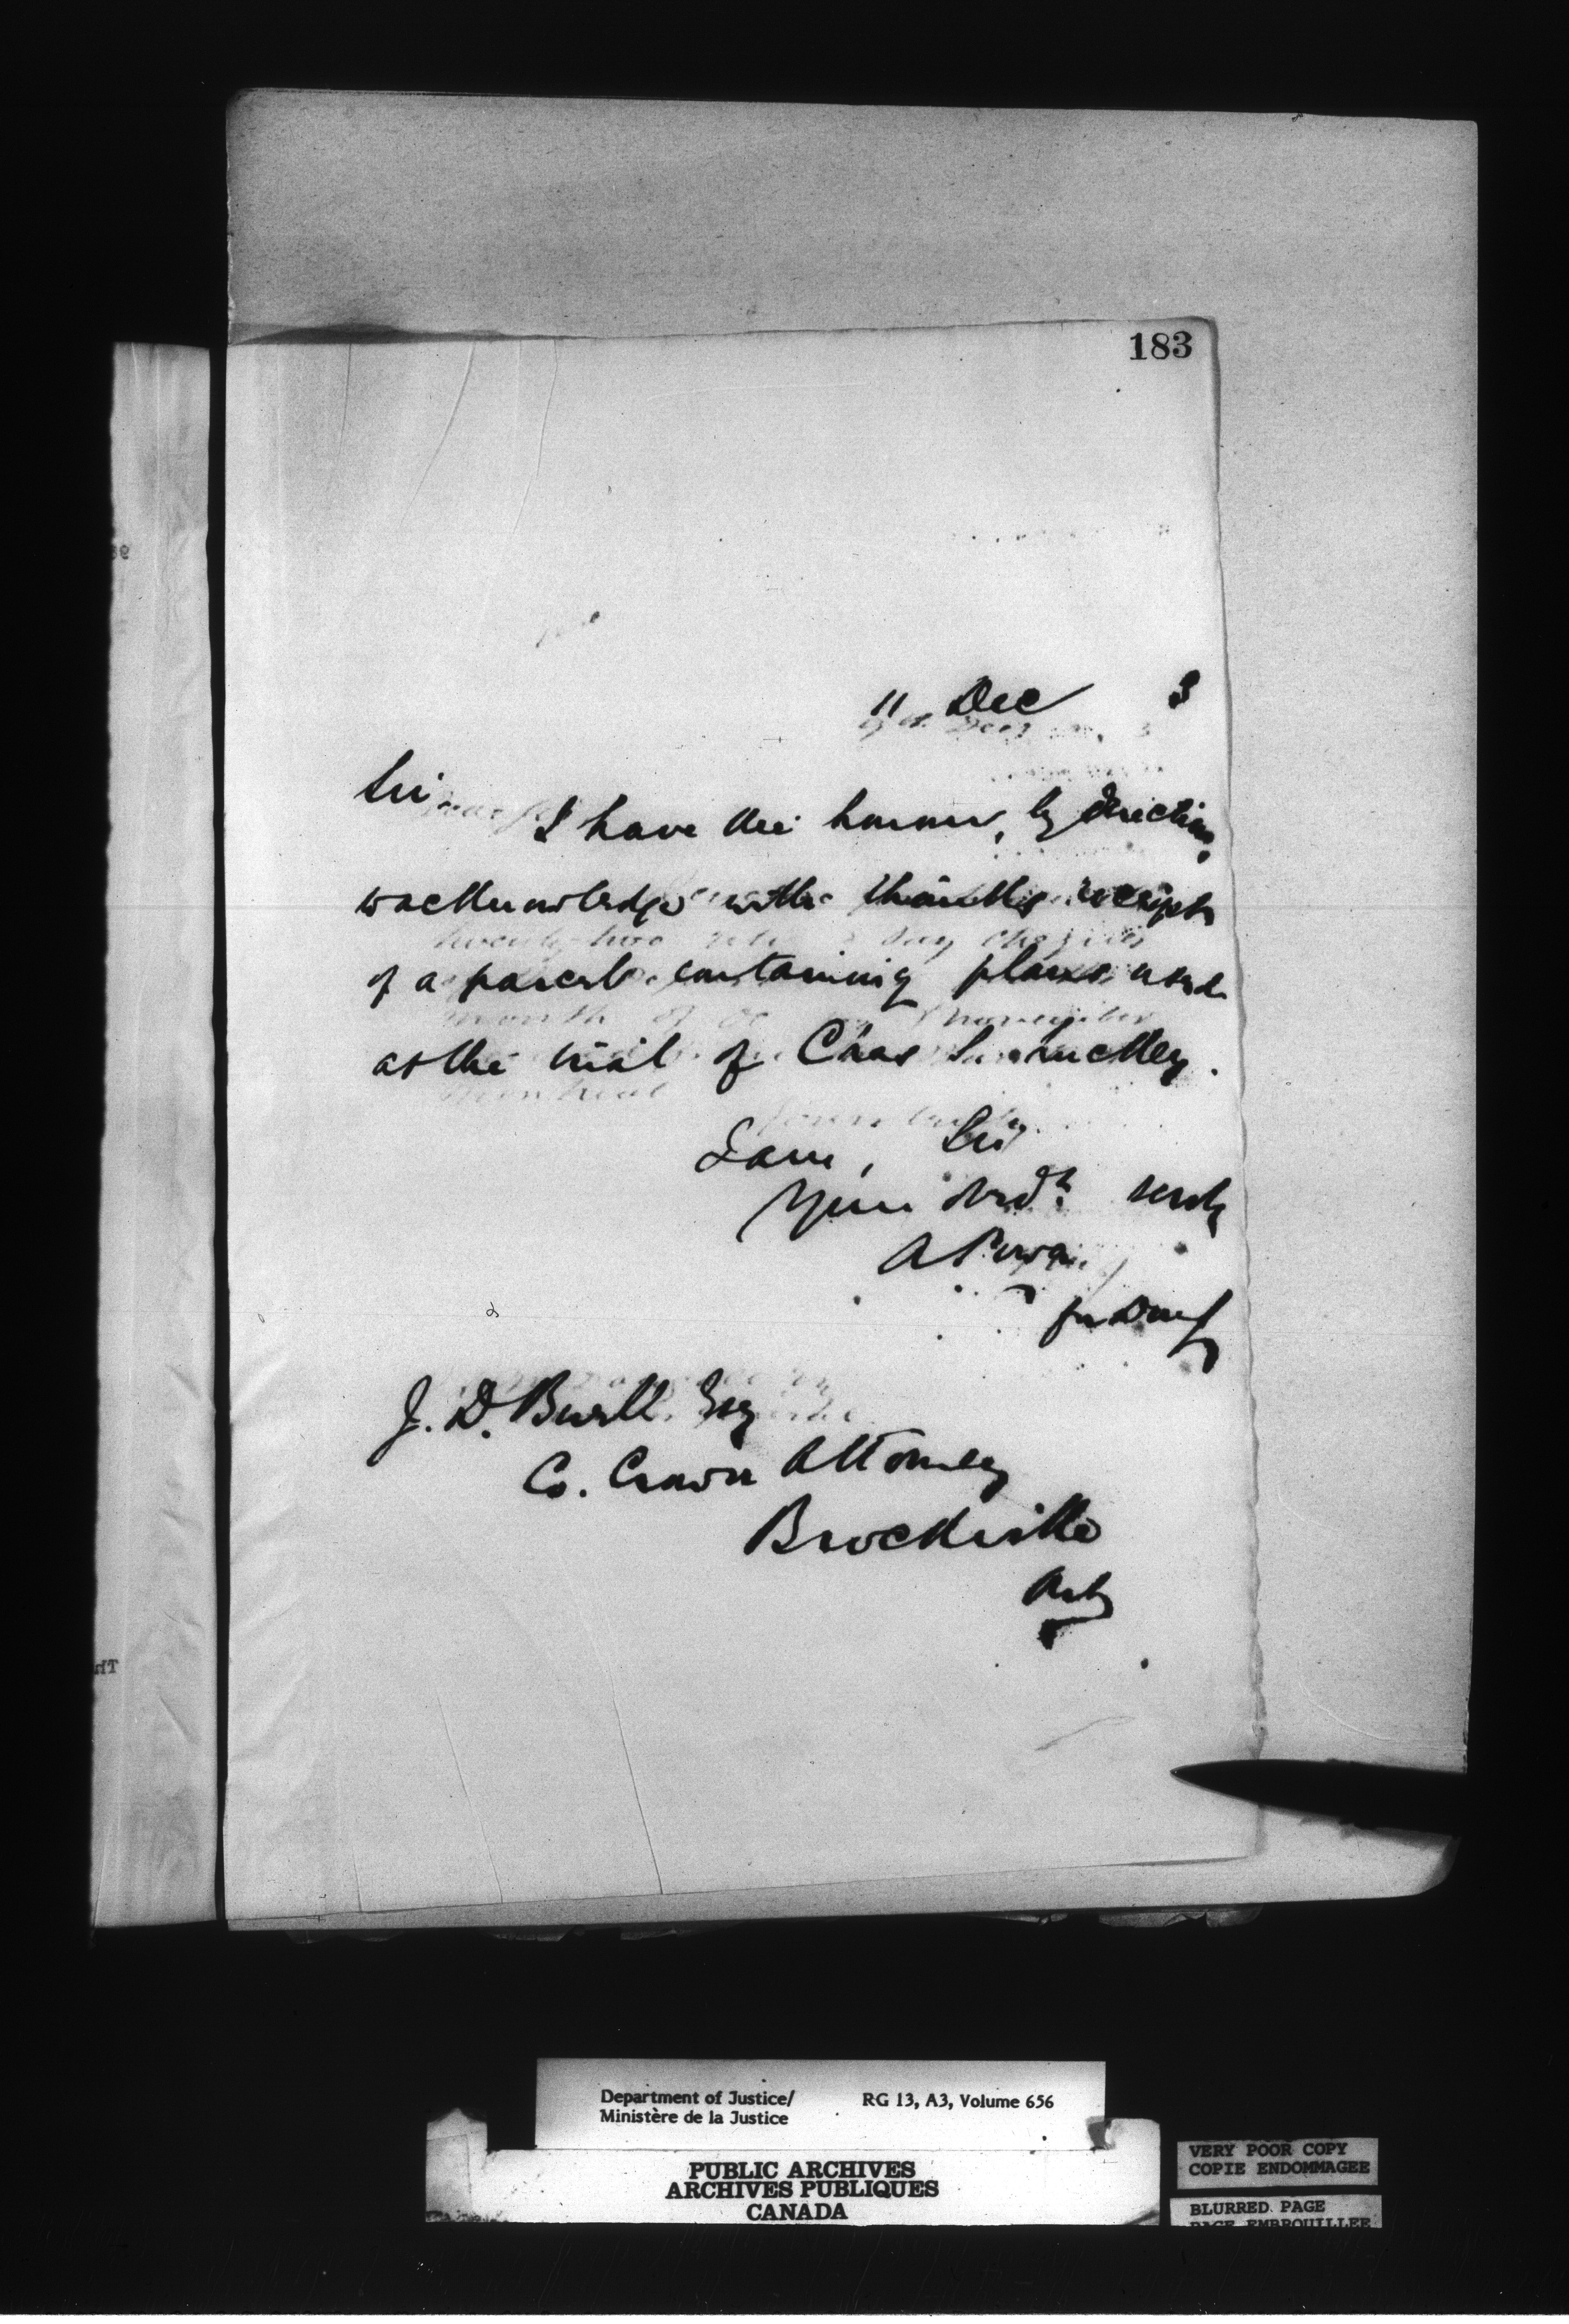 183
11 Dec 3
Sir
I have the honour, by direction,
to acknowledge with thanks receipt
of a parcel containing plans used
at the trial of Chas
I am, Sir
Your obdt servt
A Power
for DMJ
J. D. Buell Esq
Co. Crown Attorney
Brockville
Ont
Department of Justice/ RG 13, A3, Volume 656
Ministère de la Justice
PUBLIC ARCHIVES
ARCHIVES PUBLIQUES
CANADA
VERY POOR COPY
COPIE ENDOMMAGEE
BLURRED PAGE
PAGE EMBROUILLEE